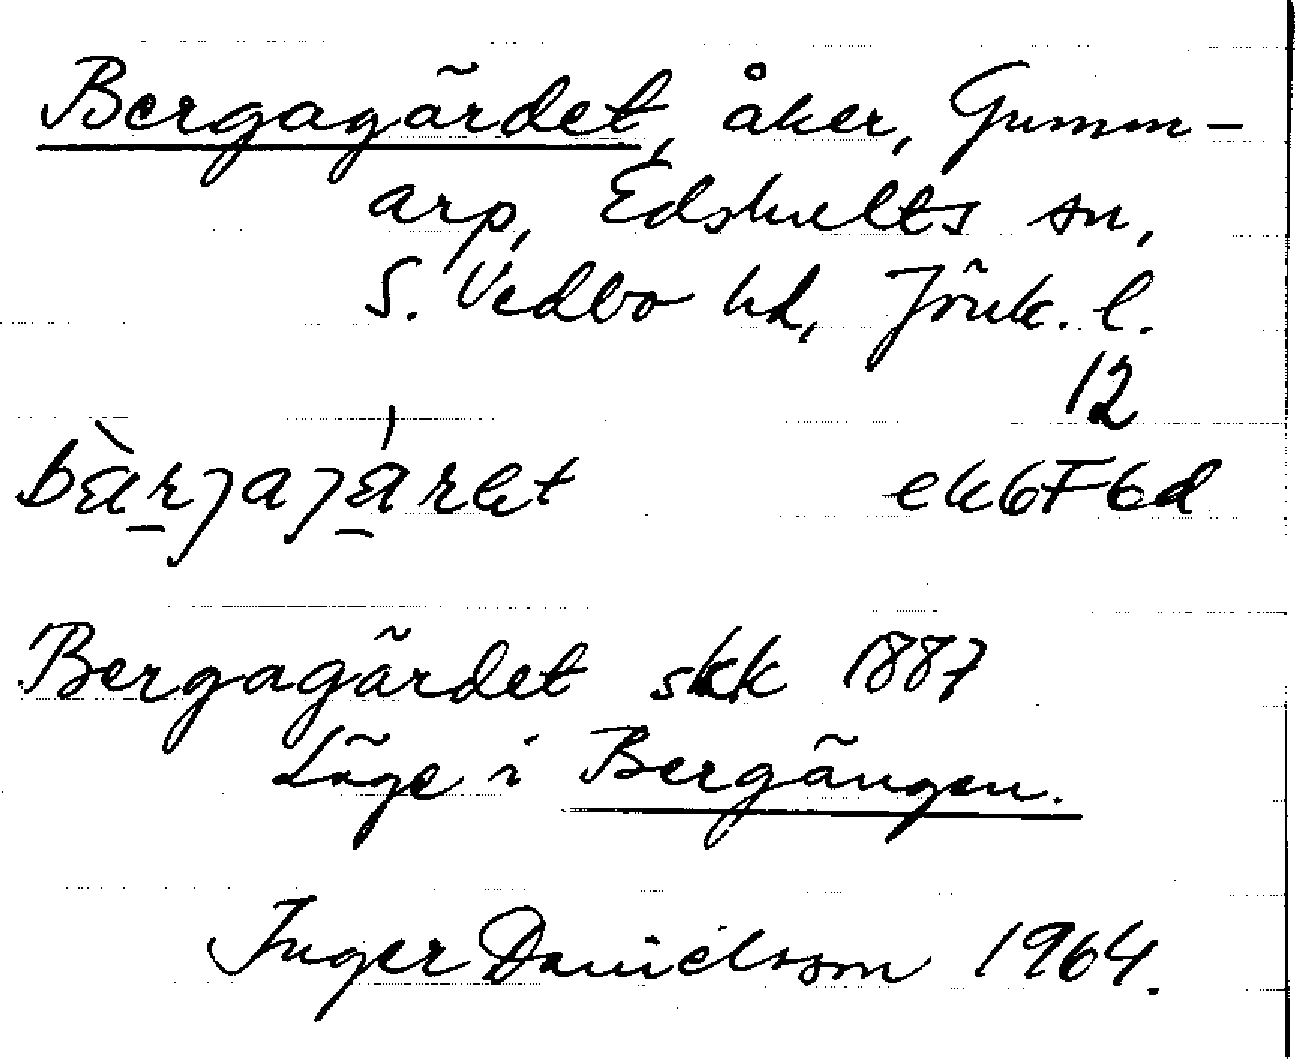 Bergagärdet, åker, Gumm-
arp, Edshults sn,
S. Vedbo hd, Jönk. l.
12
ek6F6d
Bergagärdet skk 1887
Läge i Bergängen.
Inger Danielsson 1964.